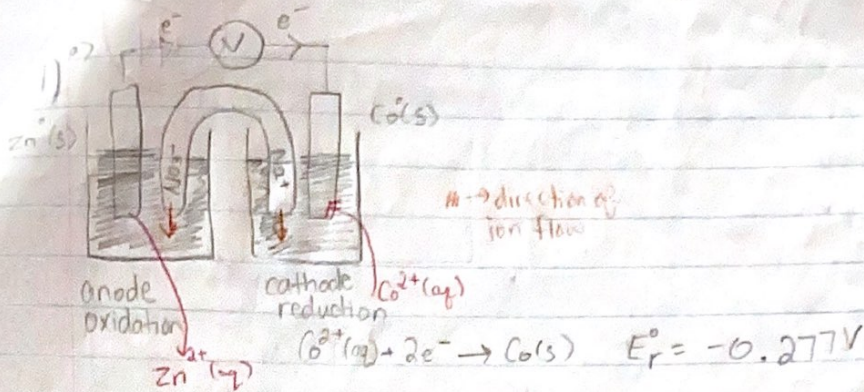 e⁻ V e⁻
1) a)
Zn°(s)
Co°(s)
NO₃⁻ Na⁺
→ direction of
ion flow
anode
oxidation
cathode
reduction
Co²⁺(aq)
Zn²⁺(aq)
Co²⁺(aq) + 2e⁻ → Co(s) E°r = -0.277V